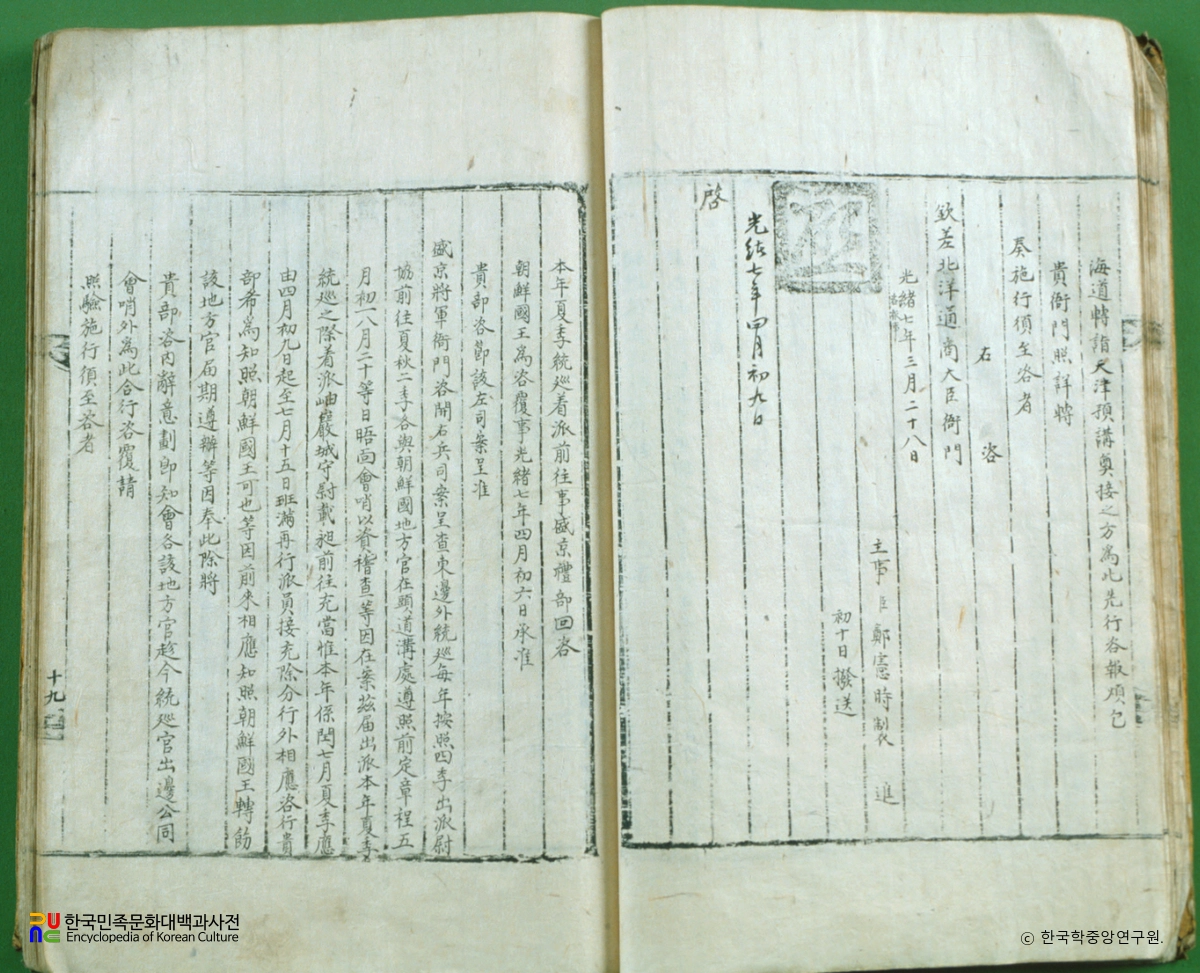 海道轉詣天津預講奠接之方爲此先行咨報煩乞
貴衙門照詳轉
奏施行須至咨者
右 咨
欽差北洋通商大臣衙門
光緖七年三月二十八日
主事 臣 鄭憲時 製 進
初十日撥送
光緖七年四月初九日
啓
本年夏季統巡着派前往事盛京禮部回咨
朝鮮國王爲咨覆事光緖七年四月初六日承准
貴部咨節該左司案呈准
盛京將軍衙門咨開右兵司案呈查東邊外統巡每年按照四季出派尉
協前往夏秋二季各與朝鮮國地方官在頭道溝處遵照前定章程五
月初一八月二十等日晤面會哨以資稽查等因在案玆屆出派本年夏季
統巡之際着派岫巖城守尉戴昶前往充當惟本年係閏七月夏季應
由四月初九日起至七月十五日班滿再行派員接充除分行外相應咨行貴
部希爲知照朝鮮國王可也等因前來相應知照朝鮮國王轉飭
該地方官屆期遵辦等因奉此除將
貴部咨內辭意劃卽知會各該地方官趁今統巡官出邊公同
會哨外爲此合行咨覆請
照驗施行須至咨者
十九
한국민족문화대백과사전
Encyclopedia of Korean Culture
© 한국학중앙연구원.